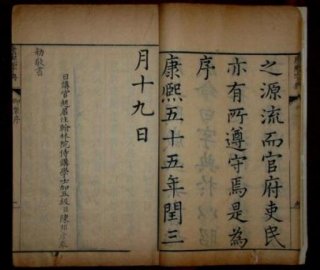 之源流而官府吏民
亦有所遵守焉是為
序
康熙五十五年閏三
月十九日
日講官起居注翰林院侍講學士加五級臣陳邦彥奉
勅敬書